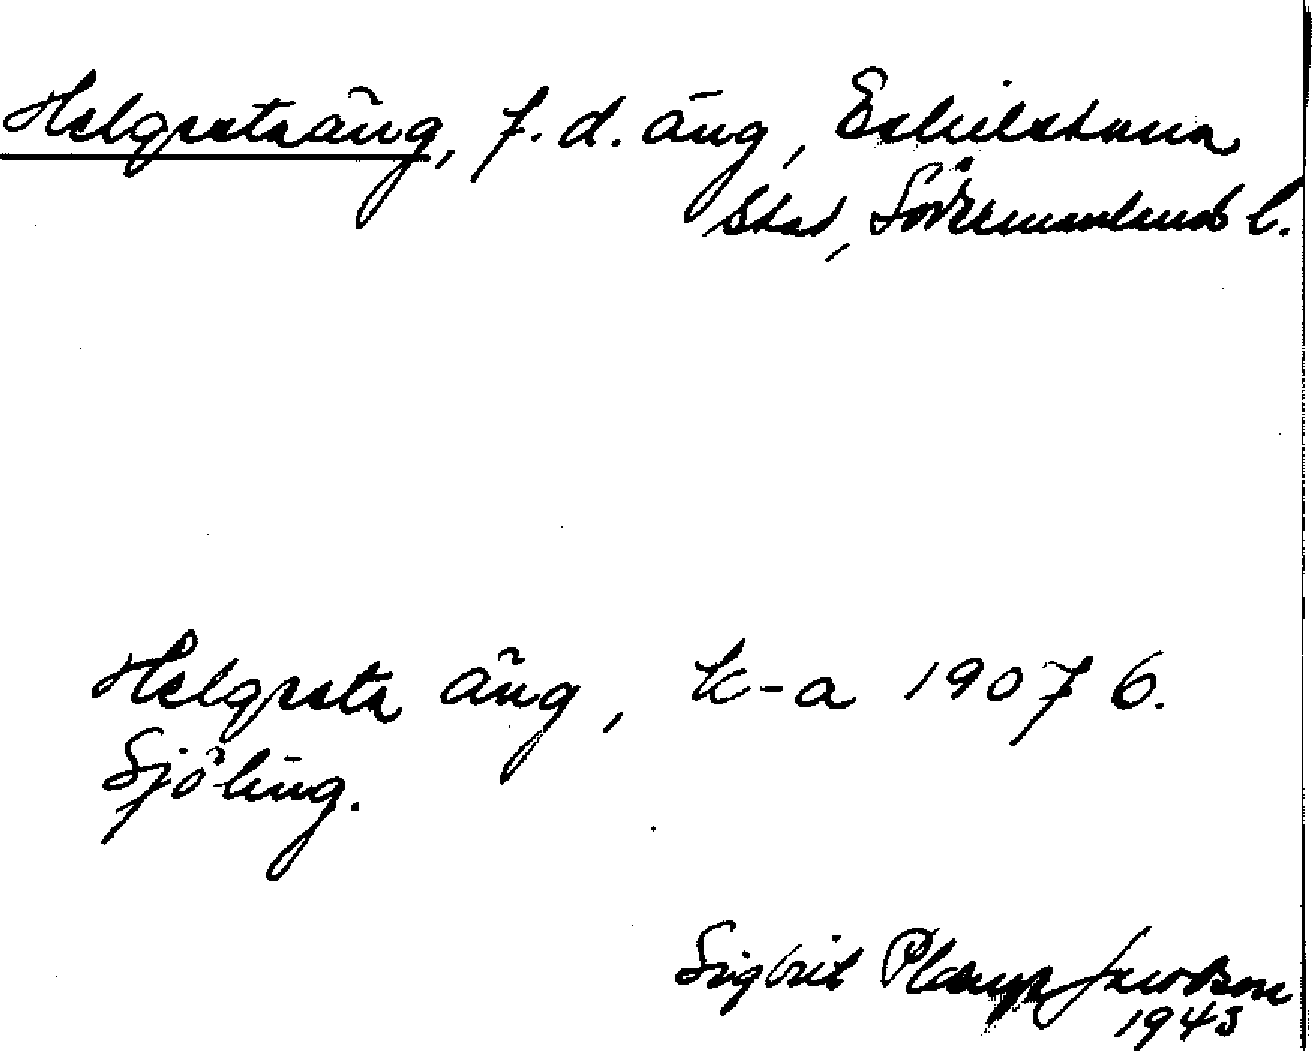 Helgestaäng, f.d. äng, Eskilstuna
stad, Södermanlands l.
Helgesta äng, k-a 1907 G.
Sjöling.
Sigbrit Plænge Jacobson
1943